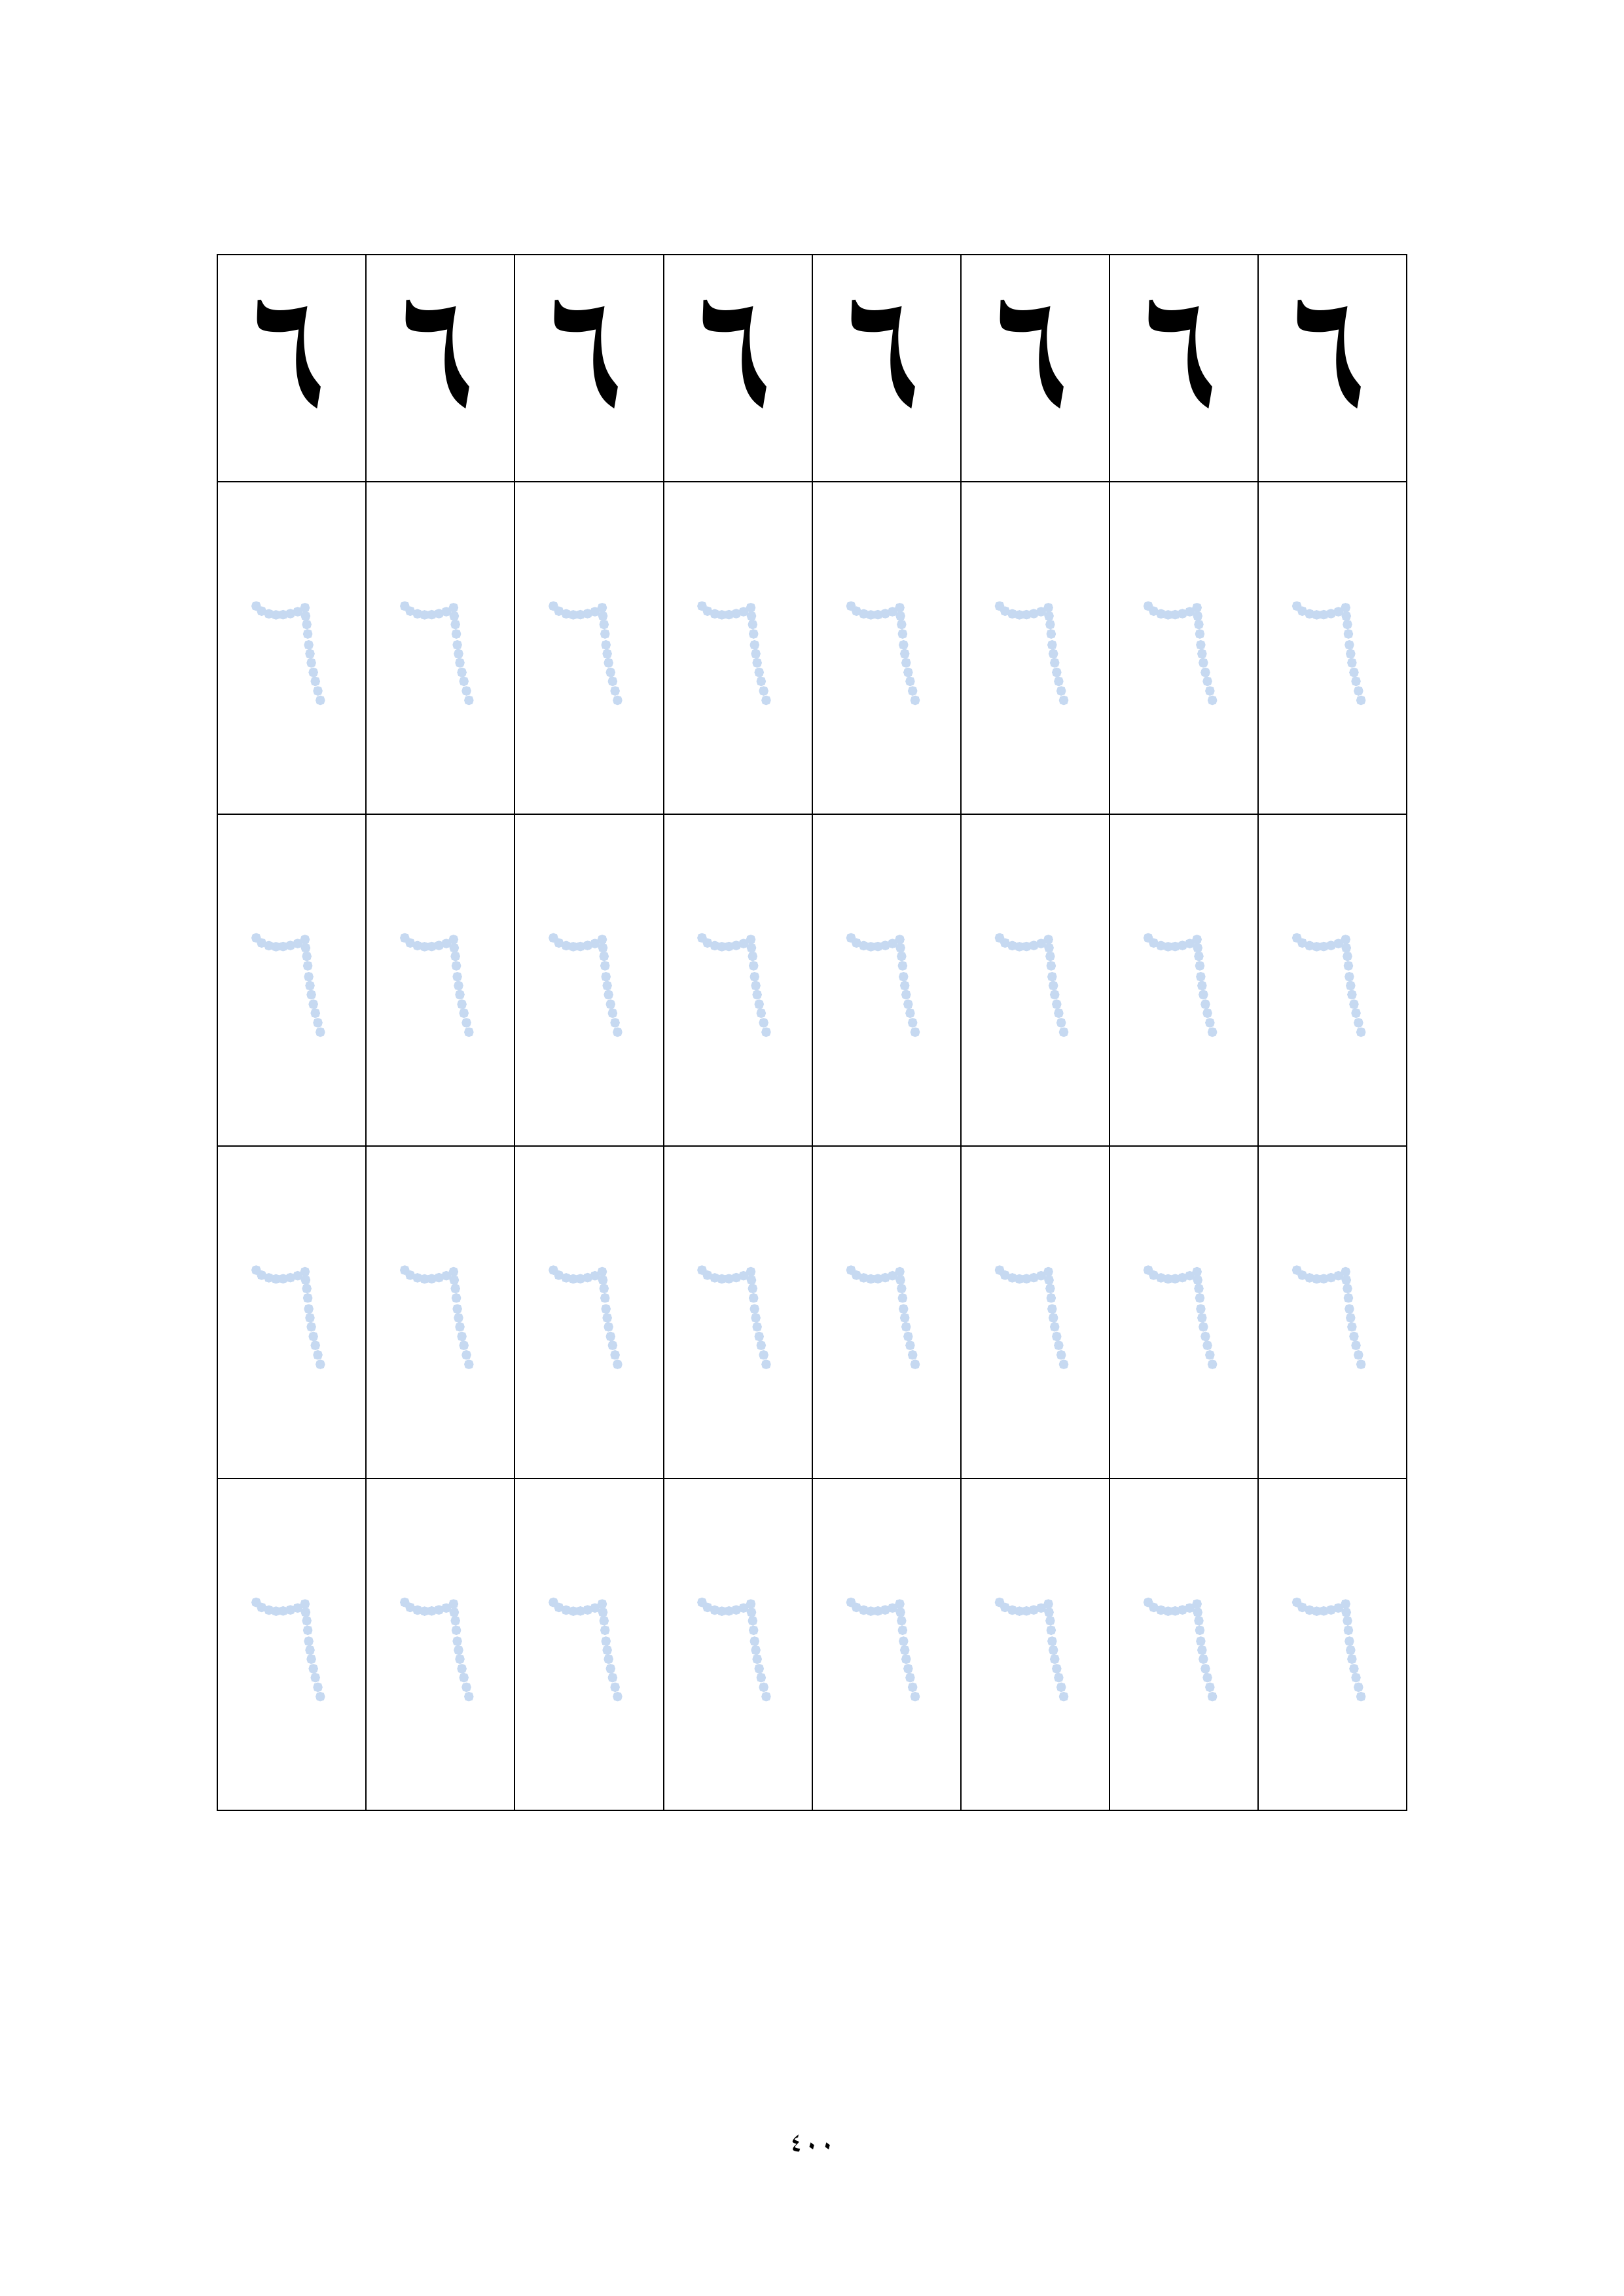 ٦ ٦ ٦ ٦ ٦ ٦ ٦ ٦
٦ ٦ ٦ ٦ ٦ ٦ ٦ ٦
٦ ٦ ٦ ٦ ٦ ٦ ٦ ٦
٦ ٦ ٦ ٦ ٦ ٦ ٦ ٦
٦ ٦ ٦ ٦ ٦ ٦ ٦ ٦
٤٠٠